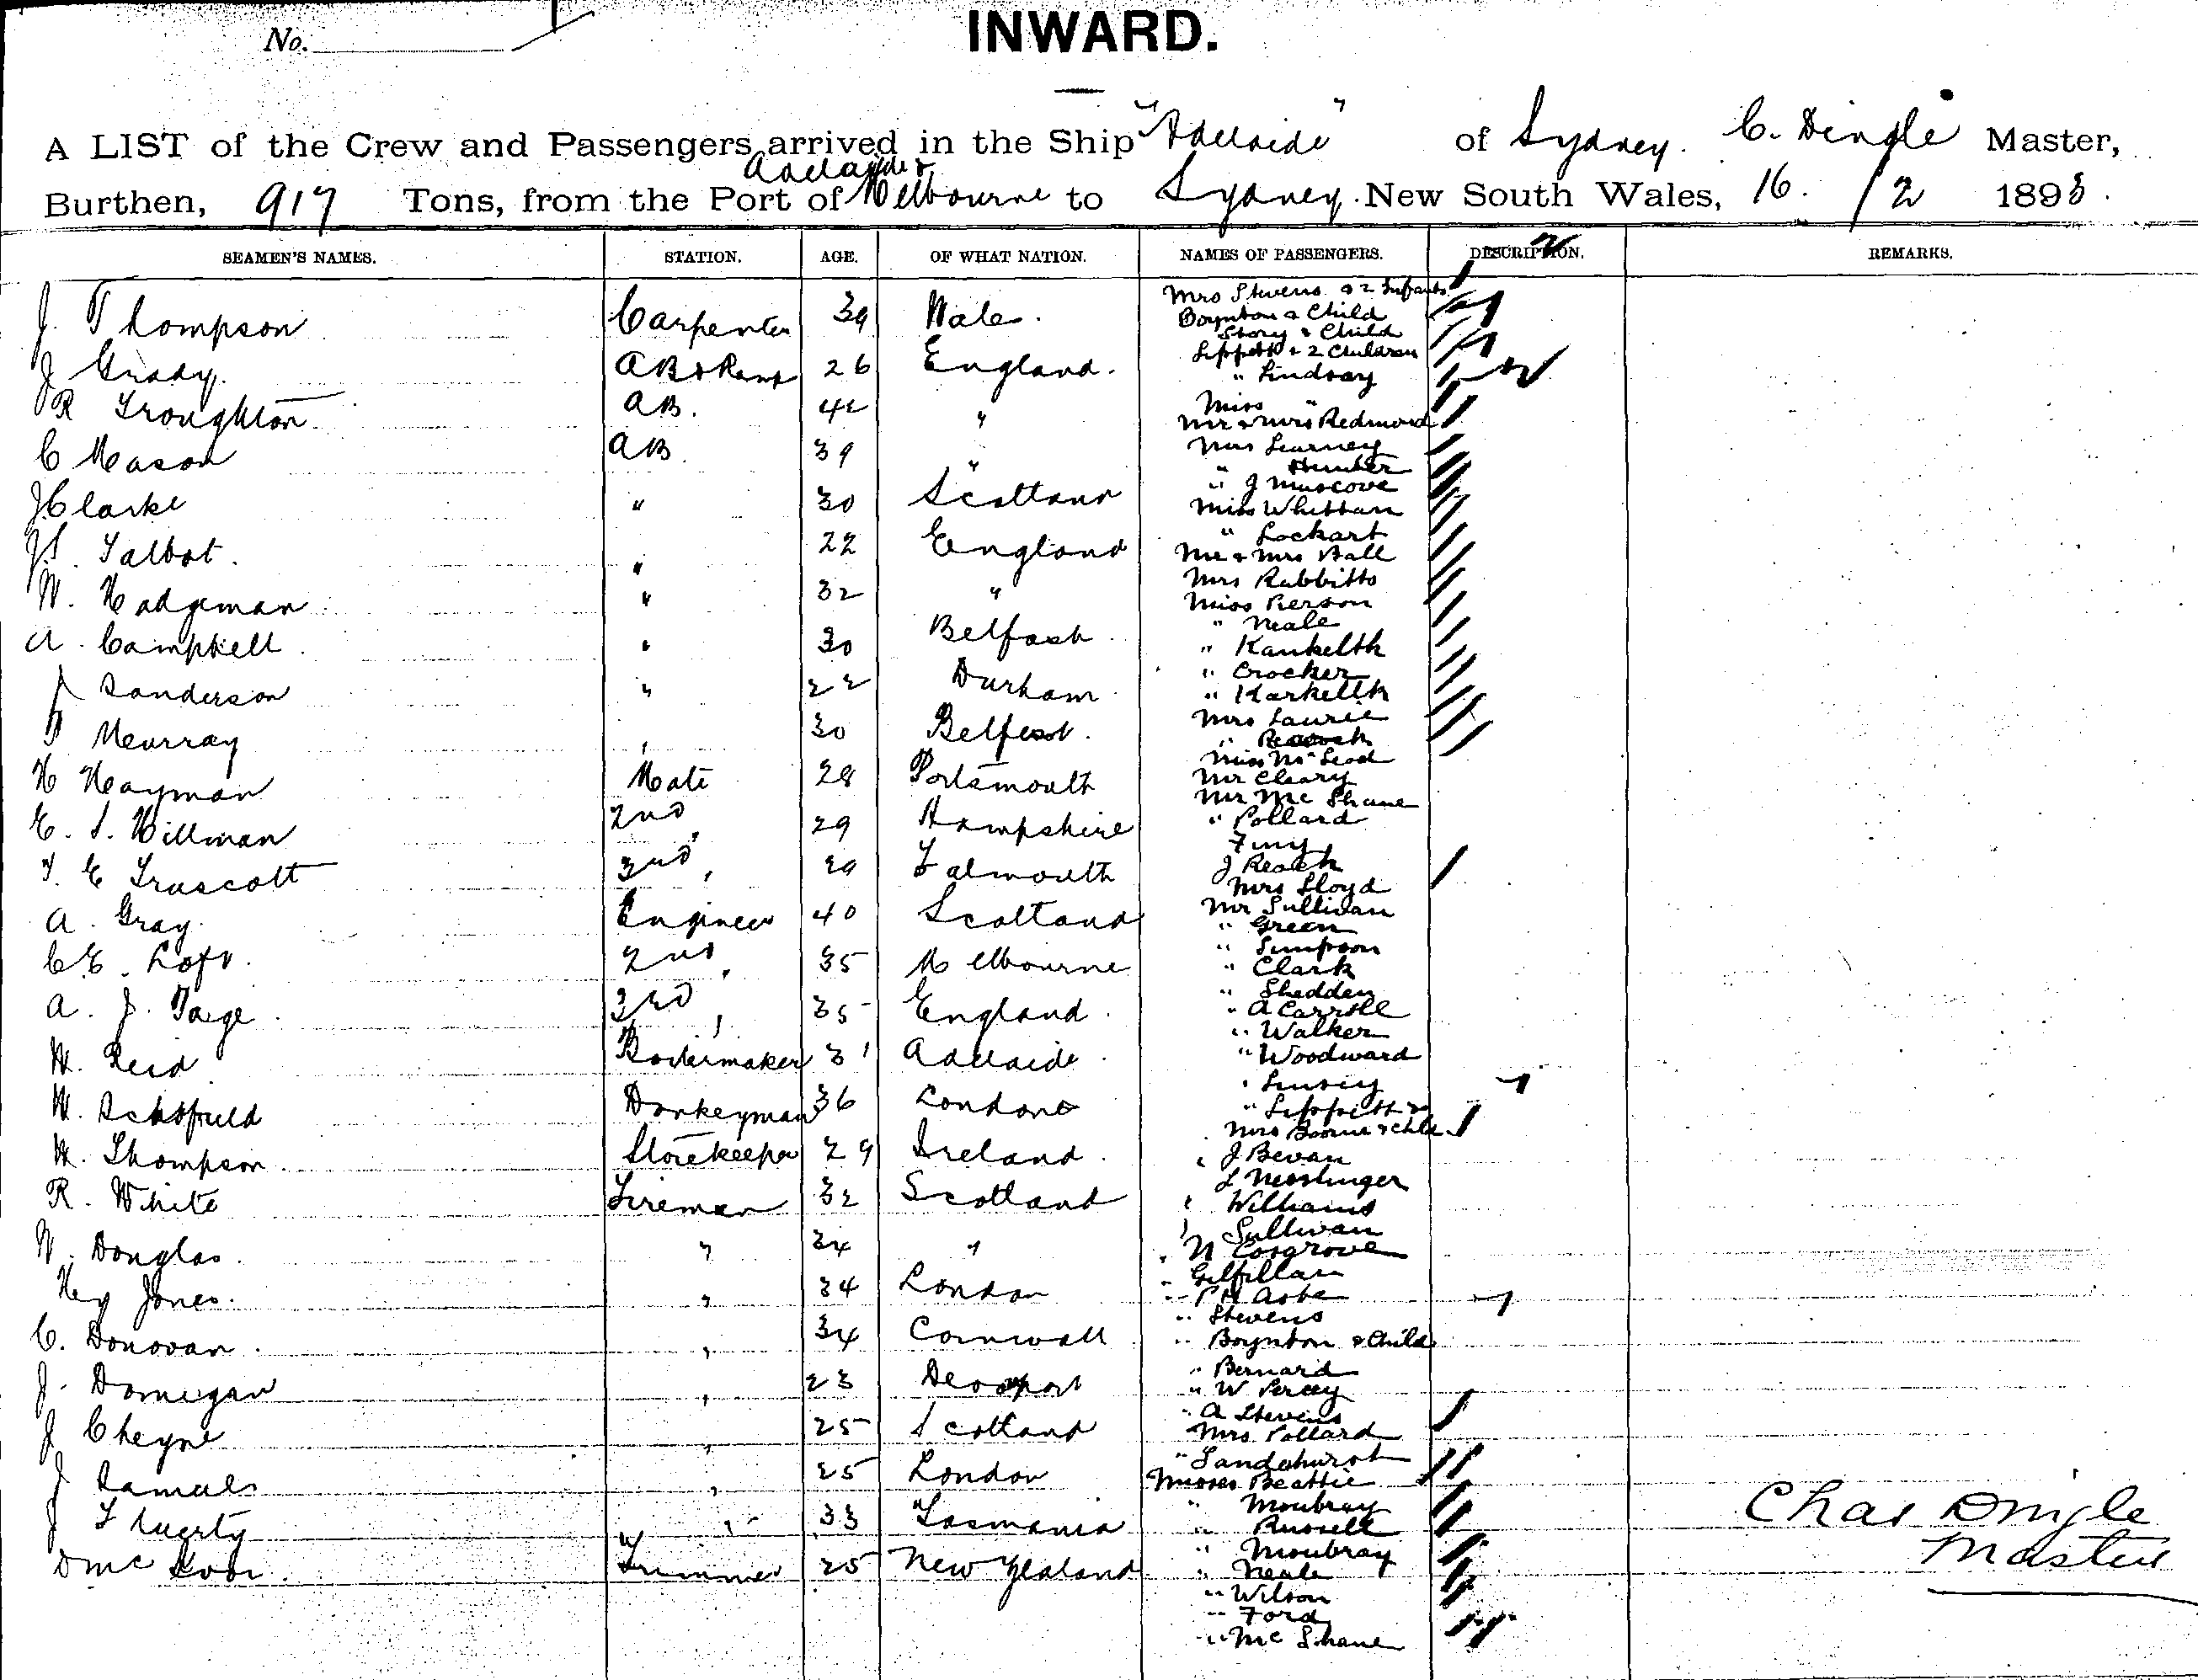 No.
INWARD.
A LIST of the Crew and Passengers arrived in the Ship "Adelaide" of Sydney. C. Dingle Master,
Adelaide &
Burthen, 917 Tons, from the Port of Melbourne to Sydney New South Wales, 16 / 2 1893.
SEAMEN'S NAMES. STATION. AGE. OF WHAT NATION. NAMES OF PASSENGERS. DESCRIPTION. REMARKS.
J. Thompson Carpenter 39 Wales.
J Grady. AB & Lamp 26 England.
R Troughton AB. 42 "
C Mason AB. 39 "
J Clarke " 30 Scotland
Talbot. " 22 England
W. Hadgeman " 32 "
A. Campbell " 30 Belfast
J Sanderson " 22 Durham
Murray " 30 Belfast.
H Hayman Mate 28 Portsmouth
E. S. Hillman 2nd " 29 Hampshire
T. E Truscott 3rd " 29 Falmouth
A. Gray. Engineer 40 Scotland
C E. Loft. 2nd " 35 Melbourne
A. J. Paige 3rd " 35 England.
W. Reid Boilermaker 31 Adelaide
W. Schofield Donkeyman 36 London
W. Thompson Storekeeper 29 Ireland.
R. White Fireman 32 Scotland
W. Douglas. " 34 "
Hy Jones. " 34 London
C. Donovan. " 34 Cornwall
J. Domigan " 23 Devonport
J Cheyne " 25 Scotland
J Samuels " 25 London
J Fluerty " 33 Tasmania
D Mc Trimmer 25 New Zealand
Mrs Stevens & 2 Infants
Boynton & Child
Story & Child
Lippett & 2 Children
" Lindsay
Miss "
Mr & Mrs Redmond
Mrs Learney
" Hunter
" J Muscove
Miss Whittam
" Lockart
Mr & Mrs Hall
Mrs Rabbitts
Miss Pierson
" Neale
" Kankelth
" Crocker
" Karkellk
Mrs Laurie
"
Miss McLeod
Mr Cleary
Mr Mc Shane
" Pollard
J Reach
Mrs Lloyd
Mr Sullivan
" Green
" Simpson
" Clark
" Shedden
" A Carroll
" Walker
" Woodward
"
" Lippett
Mrs Boorne & Chld.
" J Bevan
L Messlinger
" Williams
" Sullivan
" N Cosgrove
" Gilfillan
"
" Stevens
" Boynton & Child
" Bernard
" W Percy
" A Stevens
Mrs Pollard
" Sandehurst
Misses Beattie
" Moubray
" Russell
" Moubray
" Neale
" Wilson
" Ford
" Mc Shane
Chas Dingle
Master